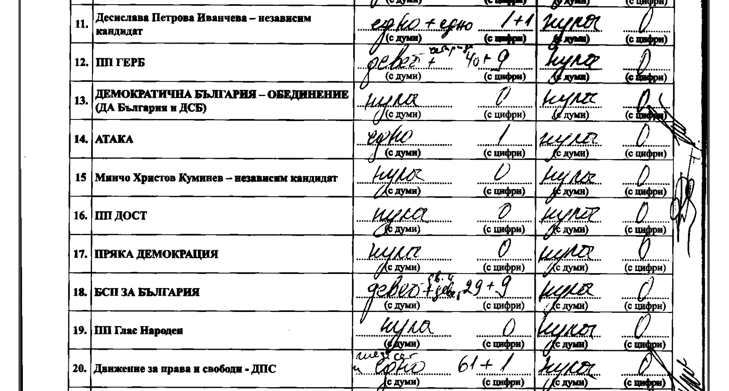 11. Десислава Петрова Иванчева – независим кандидат едно + едно 1+1 нула 0
(с думи) (с цифри) (с думи) (с цифри)
12. ПП ГЕРБ девет + 40+9 нула 0
(с думи) (с цифри) (с думи) (с цифри)
13. ДЕМОКРАТИЧНА БЪЛГАРИЯ – ОБЕДИНЕНИЕ (ДА България и ДСБ) нула 0 нула 0
(с думи) (с цифри) (с думи) (с цифри)
14. АТАКА едно 1 нула 0
(с думи) (с цифри) (с думи) (с цифри)
15 Минчо Христов Куминев – независим кандидат нула 0 нула 0
(с думи) (с цифри) (с думи) (с цифри)
16. ПП ДОСТ нула 0 нула 0
(с думи) (с цифри) (с думи) (с цифри)
17. ПРЯКА ДЕМОКРАЦИЯ нула 0 нула 0
(с думи) (с цифри) (с думи) (с цифри)
18. БСП ЗА БЪЛГАРИЯ девет + 29+9 нула 0
(с думи) (с цифри) (с думи) (с цифри)
19. ПП Глас Народен нула 0 нула 0
(с думи) (с цифри) (с думи) (с цифри)
20. Движение за права и свободи - ДПС едно 61+1 нула 0
(с думи) (с цифри) (с думи) (с цифри)